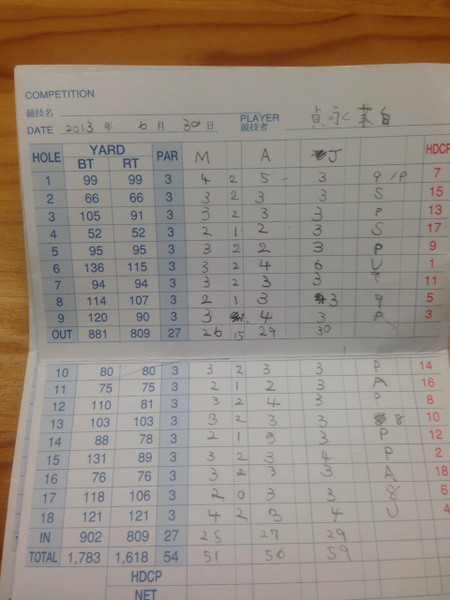 COMPETITION
競技名
DATE 2013 年 6 月 30 日 PLAYER 競技者
HOLE YARD PAR M A J HDCP
BT RT
1 99 99 3 4 2 5 3 9 /P 7
2 66 66 3 3 2 3 3 S 15
3 105 91 3 3 2 3 3 P 13
4 52 52 3 2 1 2 3 S 17
5 95 95 3 3 2 2 3 P 9
6 136 115 3 3 2 4 6 U 1
7 94 94 3 3 2 3 3 11
8 114 107 3 2 1 3 3 9 5
9 120 90 3 3 4 3 P 3
OUT 881 809 27 26 15 29 30
10 80 80 3 3 2 3 3 P 14
11 75 75 3 2 1 2 3 A 16
12 110 81 3 3 2 4 3 P 8
13 103 103 3 3 2 3 3 8 10
14 88 78 3 2 1 3 3 P 12
15 131 89 3 3 2 3 4 P 2
16 76 76 3 3 2 3 3 A 18
17 118 106 3 2 0 3 3 8 6
18 121 121 3 4 2 3 4 U 4
IN 902 809 27 25 27 29
TOTAL 1,783 1,618 54 51 56 59
HDCP
NET